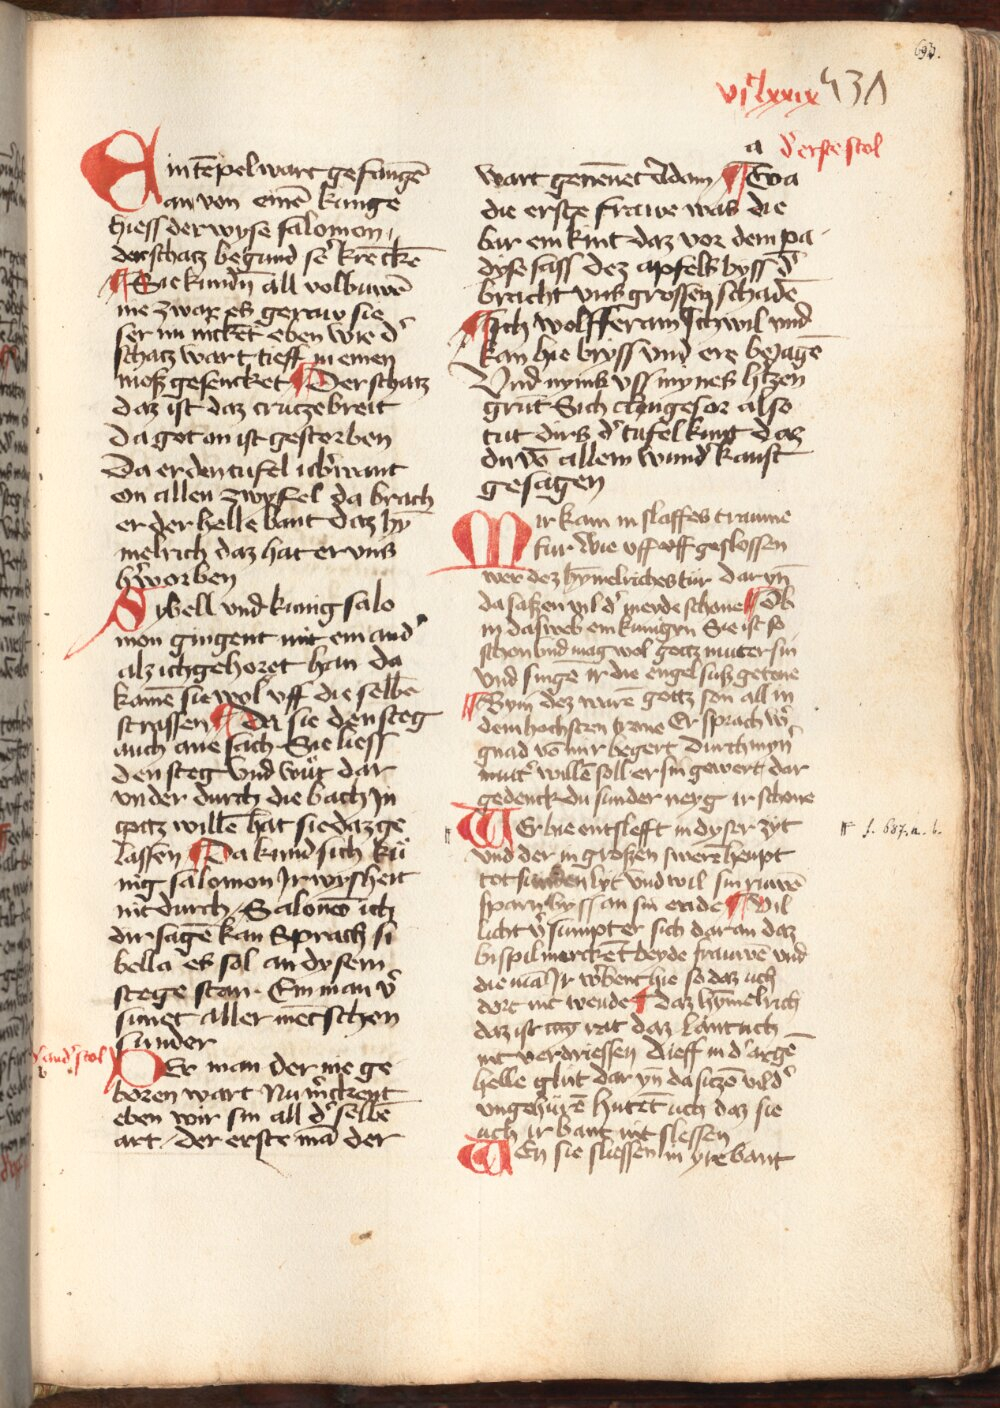 693.
vicͥlxxix 431
a dˀ erste stol
Ain tēpel wart gefangē
an von einē kunge
hiess der wyse salomon
der schatz begund sēˀ krēckē
¶ Sie kundn̄ all volbuwē
nie zwar es gerauw sie
ser nu mckēt eben wie dˀ
schatz wart tieff in einen
mosz gesencket ¶ Der schatz
daz ist daz crucze breit
Da got an ist gestorben
Da er den tufel ubˀwant
on allen zwyfel da brach
er der helle bant daz hy̅
melrich daz hat er vns
erworben
Sybell vnd kunig salo
mon gingent mit ein andˀ
alz ich gehoret han da
kamē sie wol vff die selbē
strassen ¶ Da sie den steg
auch ane sach Sie liess
den steg vnd wut dar
vnder durch die bach In
gottz willē hat sie daz ge
lassen ¶ Da kund sich kü
nig salomon Ir wysheit
nit durch Salonōn ich
dir sagē kan Sprach si
bella es sol an dysem
stege stan. Ein man vˀ
sünet aller mētschen
sunder
vˀ andˀ stol
Der man der nie ge
boren wart Nu mˀckent
eben wir sin all dˀ selbē
art. der erste mā der
wart genēnet Adam ¶ Eva
die erste frawe was die
bar ein kint daz vor dem pa
dyse sass dez apfels byss dˀ
bracht vns grossen schadē
¶ Ich wolfferam Ich wil vnd
kan hie bryss vnd ere bejagē
Vnd nyms vss mynes hˀtzen
grūt Sich clingesor also
tut dirs dˀ tufel kunt daz
du vō allem wundˀ kanst
gesagen
Mir kam in slaffes traume
fur Wie vff off geslossen
wer dez hy̅melriches tür dar yn̄
da saszen vil dˀ meyde schone ¶ Ob
in da sweb ein kunigyn Sie ist so
schon vnd mag wol gottz muter sin
vnd singē ir die engel susz getone
¶ By im dez warē gottz son all in
dem hochsten trone Er sprach wˀ
gnad vō mir begert durch myn̄
mutˀ willē soll er sin gewert dar
gedenck du sunder neyg ir schone
Wer hie entslefft in dyser zyt
vnd der in groszen swerē heupt
tot sunden lyt vnd wil sin ruwē
sparn byss an sin ende ¶ Vil
licht vˀsumpt er sich dar an daz
bispil merckēt beyde frauwē vnd
die mā Ir wˀbent hie so daz uch
dort nit wende ¶ daz hy̅melrich
daz ist myn rat daz lānt uch
nit verdriessen dieff in dˀ argē
helle glut dar yn̄ da siczē vil dˀ
vngehürē hutēt uch daz sie
uch ir bant nit slessen
¶ f. 687. a. b.
Wen sie sliessen in yre bant